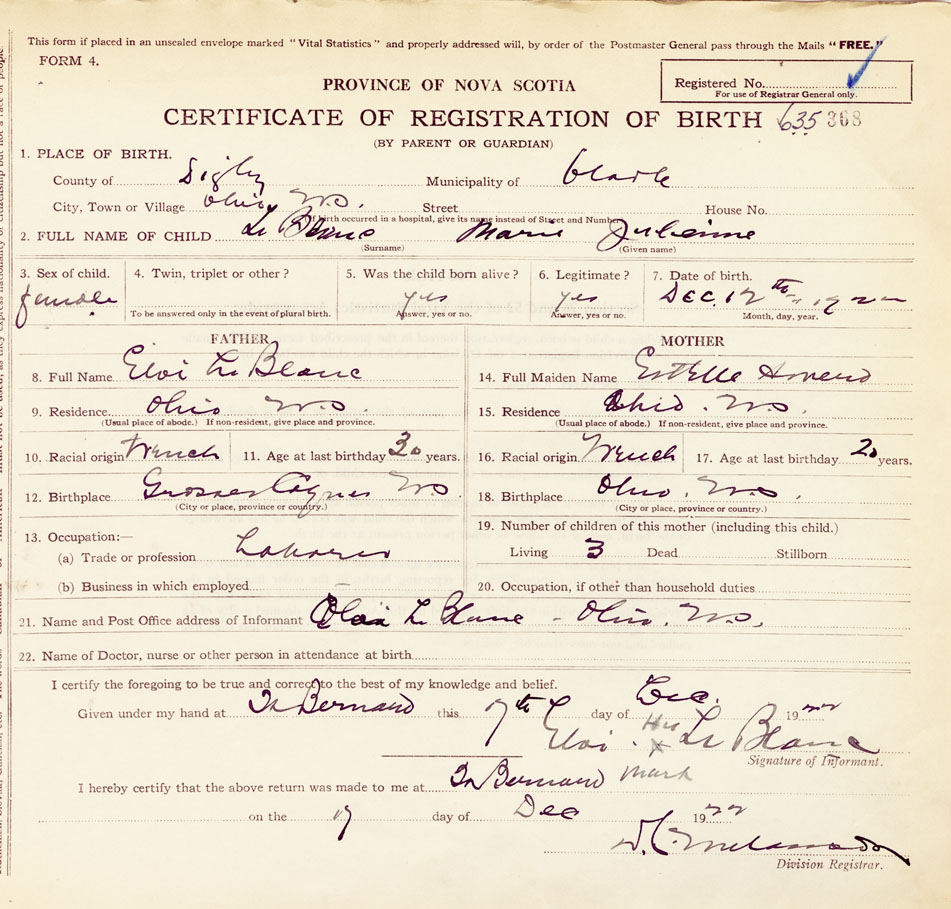 This form if placed in an unsealed envelope marked "Vital Statistics" and properly addressed will, by order of the Postmaster General pass through the Mails "FREE."
FORM 4.
Registered No.
For use of Registrar General only.
PROVINCE OF NOVA SCOTIA
CERTIFICATE OF REGISTRATION OF BIRTH 635 368
(BY PARENT OR GUARDIAN)
1. PLACE OF BIRTH.
County of Digby Municipality of Clare
City, Town or Village Ohio, N.S. Street House No.
(If birth occurred in a hospital, give its name instead of Street and Number)
2. FULL NAME OF CHILD Le Blanc Marie Julienne
(Surname) (Given name)
3. Sex of child. 4. Twin, triplet or other? 5. Was the child born alive? 6. Legitimate? 7. Date of birth.
female yes yes Dec. 12th
To be answered only in the event of plural birth. Answer, yes or no. Answer, yes or no. Month, day, year.
FATHER MOTHER
8. Full Name Eloi Le Blanc 14. Full Maiden Name Estelle
9. Residence Ohio N.S. 15. Residence Ohio. N.S.
(Usual place of abode.) If non-resident, give place and province. (Usual place of abode.) If non-resident, give place and province.
10. Racial origin French 11. Age at last birthday 30 years. 16. Racial origin French 17. Age at last birthday 20 years.
12. Birthplace Grosses Coques N.S. 18. Birthplace Ohio. N.S.
(City or place, province or country.) (City or place, province or country.)
13. Occupation:— 19. Number of children of this mother (including this child.)
(a) Trade or profession Laborer Living 3 Dead Stillborn
(b) Business in which employed — 20. Occupation, if other than household duties
21. Name and Post Office address of Informant Eloi Le Blanc - Ohio. N.S.
22. Name of Doctor, nurse or other person in attendance at birth
I certify the foregoing to be true and correct to the best of my knowledge and belief.
Given under my hand at St Bernard this 17th day of Dec. 1922
Eloi His X Mark Le Blanc
Signature of Informant.
I hereby certify that the above return was made to me at St Bernard
on the 17 day of Dec 1922
Division Registrar.